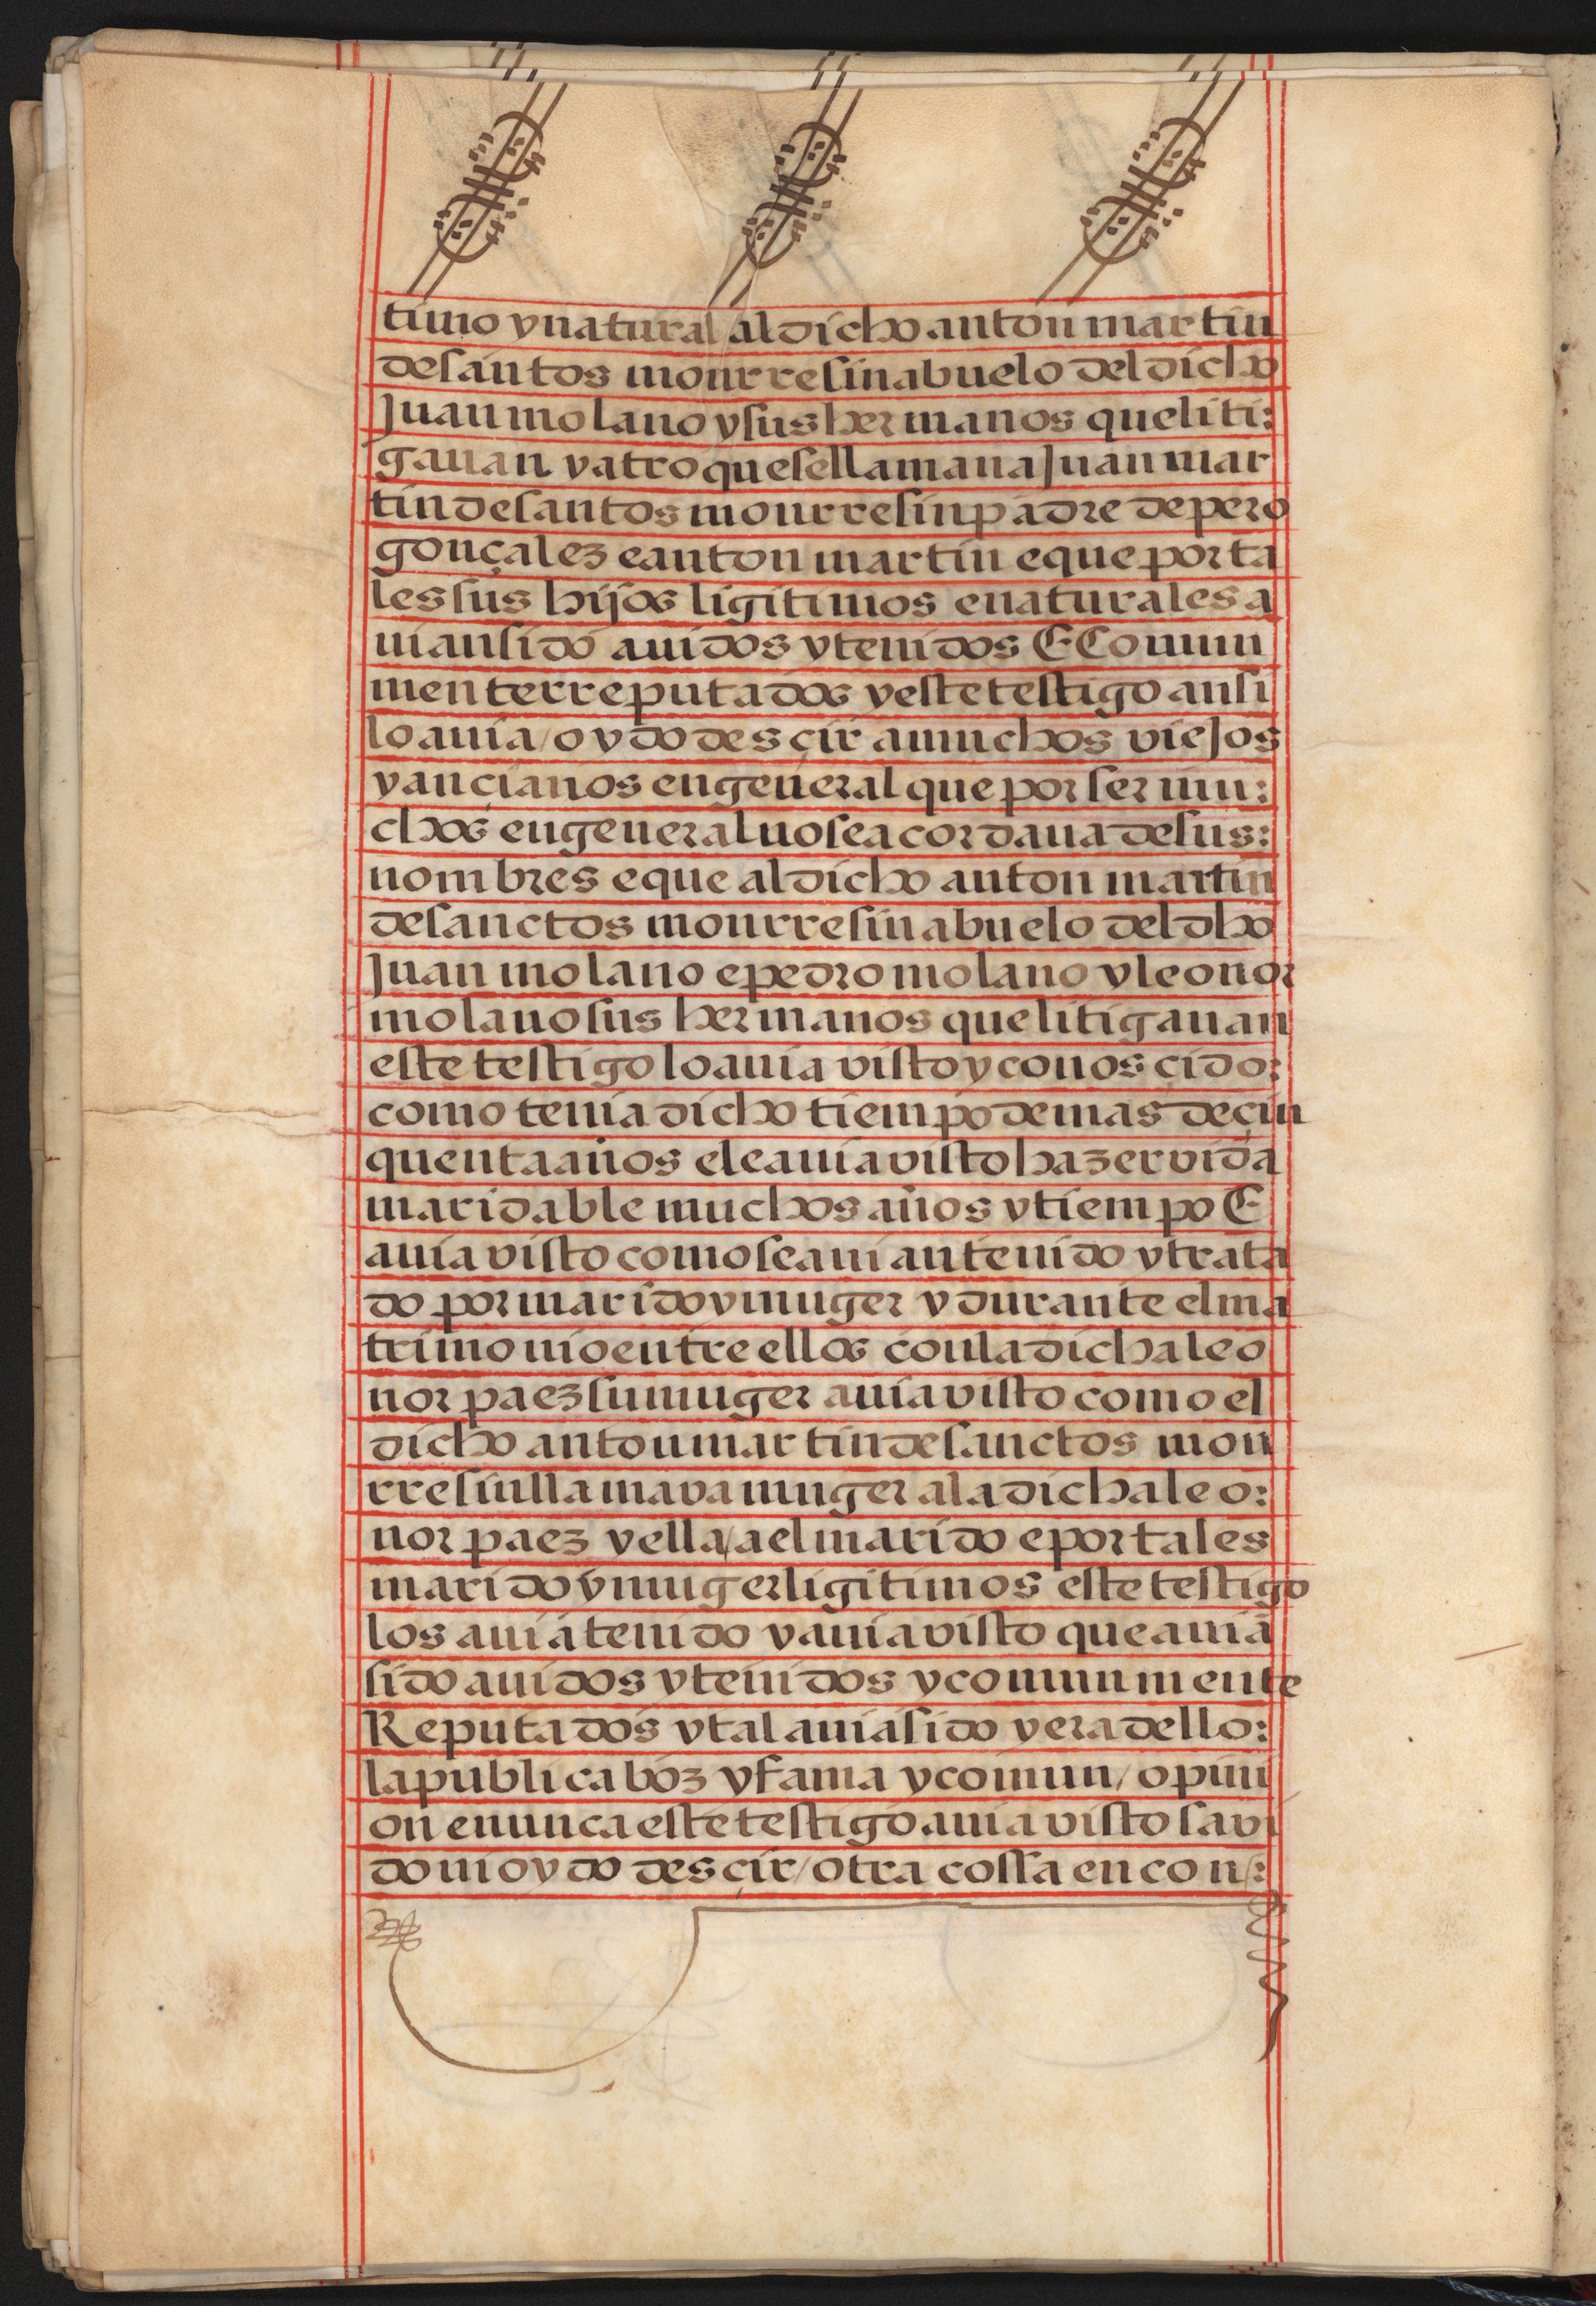 timo y natural al dicho anton martin
de santos monrresin abuelo del dicho
Juan molano y sus hermanos que liti:
gauan y a tro que se llamaua Juan mar
tin de santos monrresin padre de pero
gonçalez e anton martin e que por ta
les sus hijos ligitimos e naturales a
uian sido auidos y tenidos E Comun
mente rreputados y este testigo ansi
lo auia / oydo desçir a muchos viejos
y ançianos en general que por ser mu:
chos en general no se acordaua de sus:
nombres e que al dicho anton martin
de sanctos monrresin abuelo del dho
Juan molano e pedro molano y leonor
molano sus hermanos que litigauan
este testigo lo auia visto y conosçido:
como tenia dicho tiempo de mas de çin
quenta años e le auia visto hazer vida
maridable muchos años y tiempo E
auia visto como se auian tenido y trata
do por marido y muger y durante el ma
trimonio entre ellos con la dicha leo
nor paez su muger auia visto como el
dicho anton martin de sanctos mon
rresin llamava muger a la dicha leo:
nor paez y ella / a el marido e por tales
marido y muger ligitimos este testigo
los auia tenido y auia visto que auiā
sido auidos y tenidos y comunmente
Reputados y tal auia sido y era dello:
la publica boz y fama y comun / opini
on e nunca este testigo auia visto savi
do ni oydo desçir / otra cossa en con: